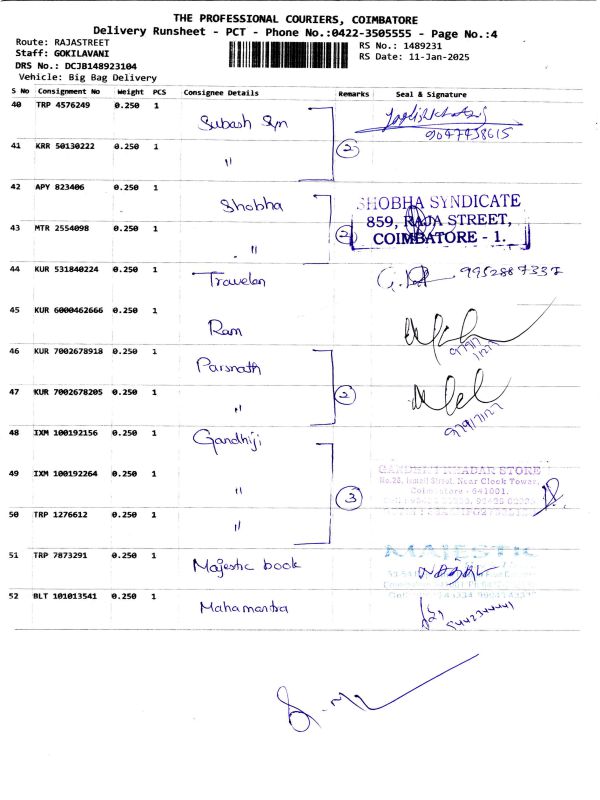 THE PROFESSIONAL COURIERS, COIMBATORE
Delivery Runsheet - PCT - Phone No.:0422-3505555 - Page No.:4
Route: RAJASTREET
RS No.: 1489231
Staff: GOKILAVANI
RS Date: 11-Jan-2025
DRS No.: DCJB148923104
Vehicle: Big Bag Delivery
S No Consignment No Weight PCS Consignee Details Remarks Seal & Signature
40 TRP 4576249 0.250 1 Subash Syn
9047458615
41 KRR 50130222 0.250 1 " 2
42 APY 823406 0.250 1 Shobha SHOBHA SYNDICATE
859, RAJA STREET,
43 MTR 2554098 0.250 1 " 2 COIMBATORE - 1.
44 KUR 531840224 0.250 1 Travelon 9952887337
45 KUR 6000462666 0.250 1 Ram
46 KUR 7002678918 0.250 1 Parsnath
47 KUR 7002678205 0.250 1 " 2
48 IXM 100192156 0.250 1 Gandhiji
49 IXM 100192264 0.250 1 " 3 KHADAR STORE
Street, Near Clock Tower,
641001.
50 TRP 1276612 0.250 1 "
51 TRP 7873291 0.250 1 Majestic book MAJESTIC
52 BLT 101013541 0.250 1 Mahamantra